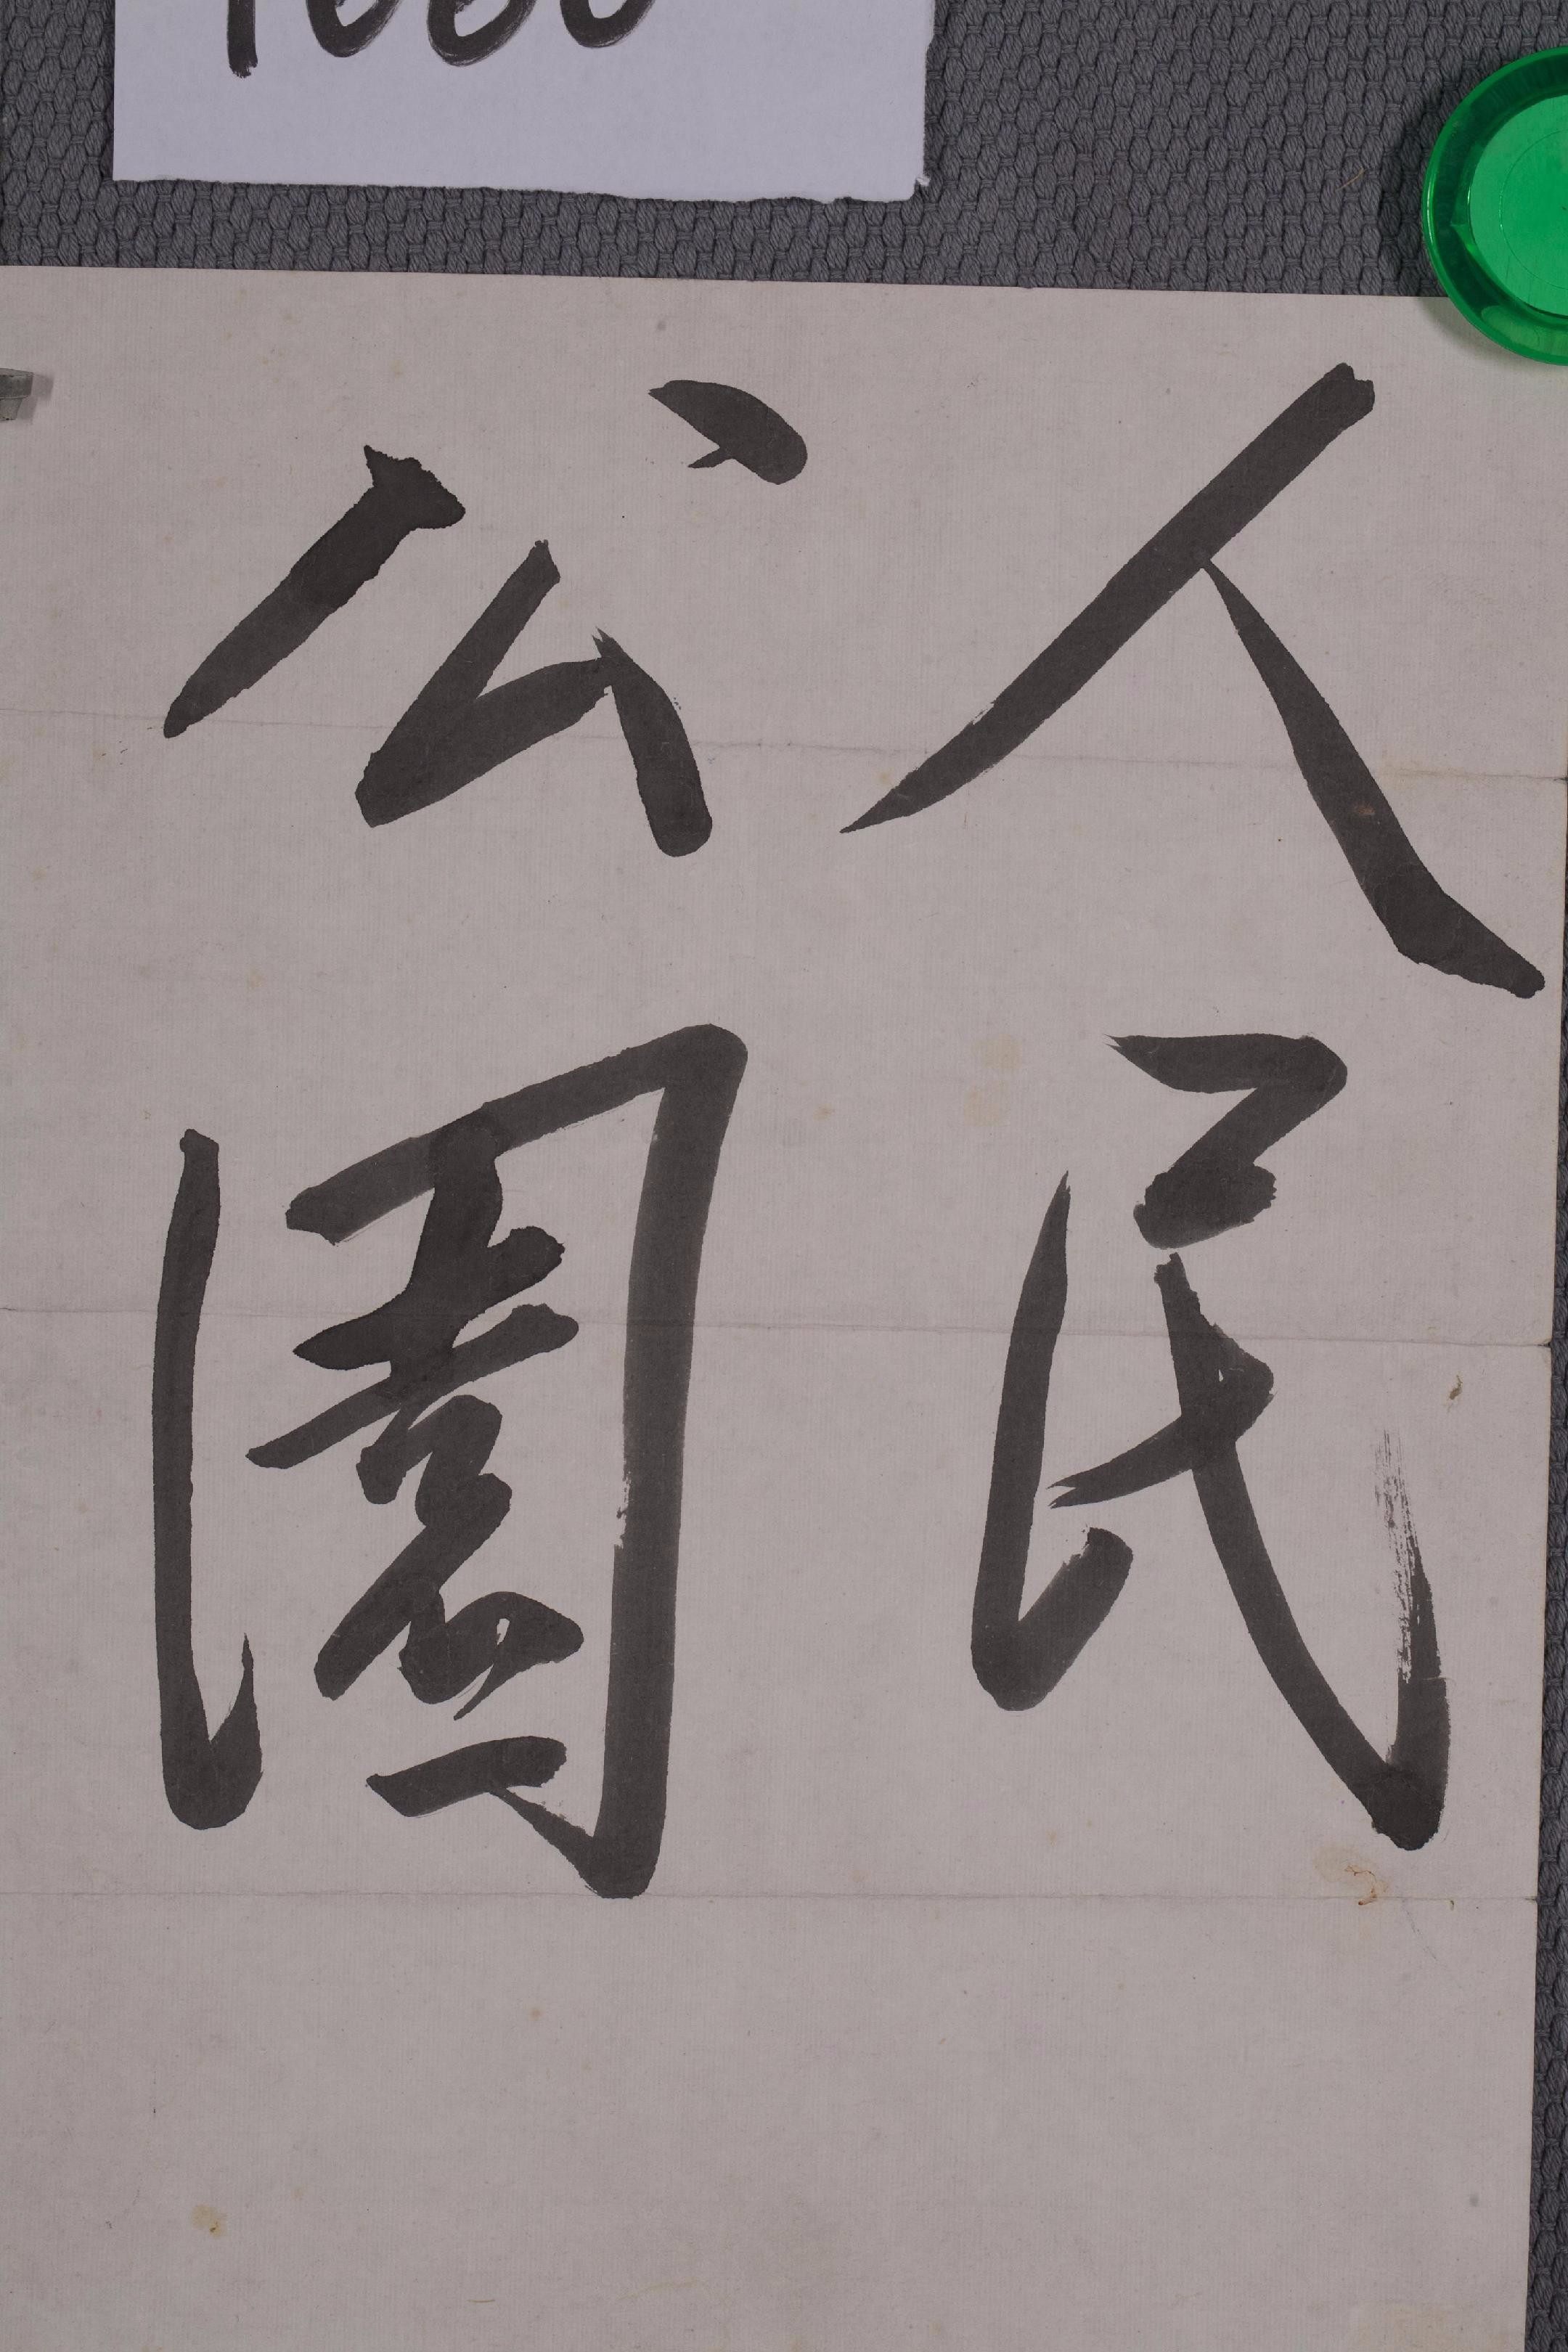 人民
公園